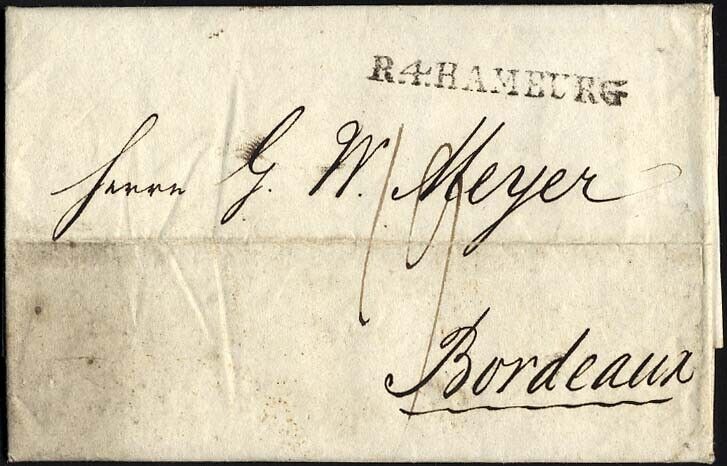 R.4.HAMBURG
Herrn G. W. Meyer
19
Bordeaux